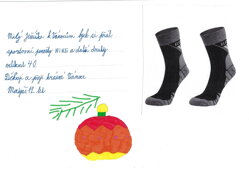 Milý Ježíšku k Vánocům bych si přál
sportovní ponožky
velikost 40.
Děkuji a přeji krásné Vánoce
Matyáš 12 let